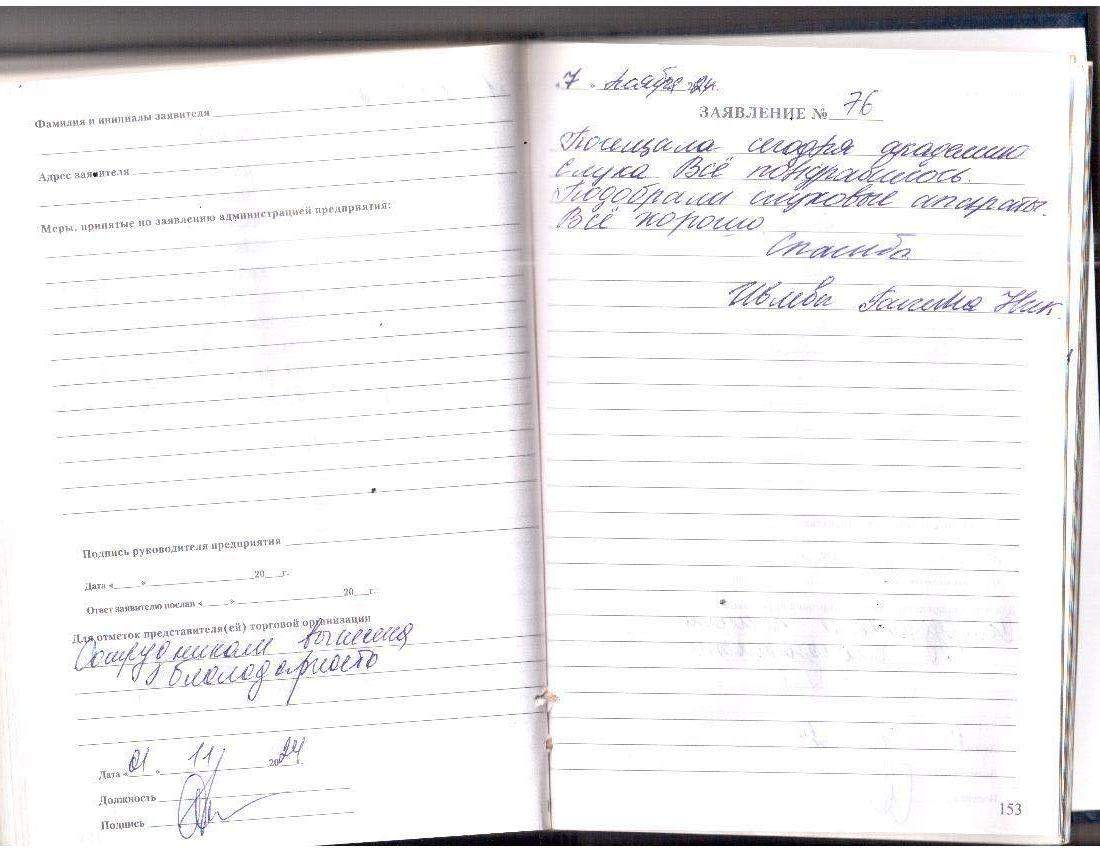 Фамилия и инициалы заявителя
Адрес заявителя
Меры, принятые по заявлению администрацией предприятия:
Подпись руководителя предприятия
Дата « » 20 г.
Ответ заявителю послан « » 20 г.
Для отметок представителя(ей) торговой организации
Сотрудникам вынесена
благодарность
Дата «01» 11 2024
Должность
Подпись
«7» ноября 24г.
ЗАЯВЛЕНИЕ № 76
Посещала сегодня академию
слуха Всё пондравилось.
Подобрали слуховые аппараты.
Всё хорошо
Спасибо
Ивлева Ник.
153